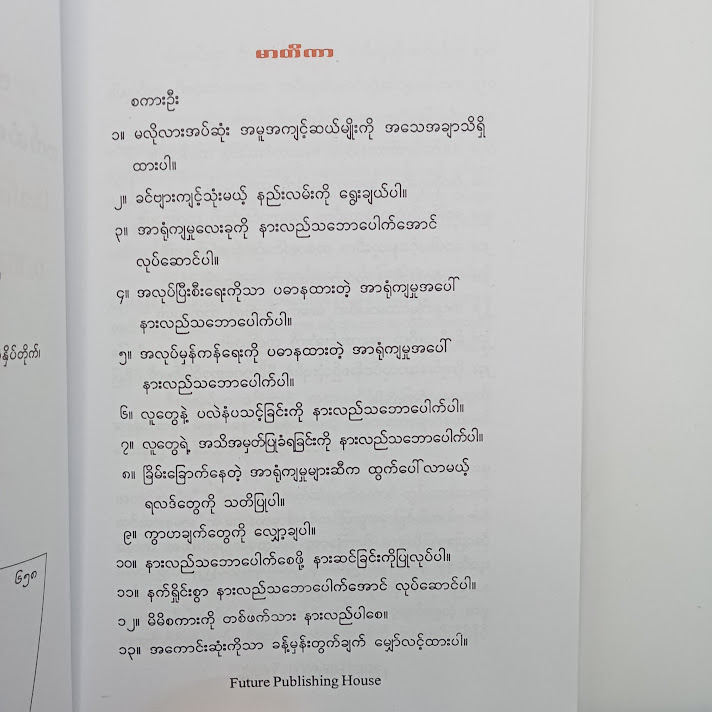 မာတိကာ
စကားဦး
၁။ မလိုလားအပ်ဆုံး အမူအကျင့်ဆယ်မျိုးကို အသေအချာသိရှိ
ထားပါ။
၂။ ခင်ဗျားကျင့်သုံးမယ့် နည်းလမ်းကို ရွေးချယ်ပါ။
၃။ အာရုံကျမှုလေးခုကို နားလည်သဘောပေါက်အောင်
လုပ်ဆောင်ပါ။
၄။ အလုပ်ပြီးစီးရေးကိုသာ ပဓာနထားတဲ့ အာရုံကျမှုအပေါ်
နားလည်သဘောပေါက်ပါ။
၅။ အလုပ်မှန်ကန်ရေးကို ပဓာနထားတဲ့ အာရုံကျမှုအပေါ်
နားလည်သဘောပေါက်ပါ။
၆။ လူတွေနဲ့ ပလဲနံပသင့်ခြင်းကို နားလည်သဘောပေါက်ပါ။
၇။ လူတွေရဲ့ အသိအမှတ်ပြုခံရခြင်းကို နားလည်သဘောပေါက်ပါ။
၈။ ခြိမ်းခြောက်နေတဲ့ အာရုံကျမှုများဆီက ထွက်ပေါ်လာမယ့်
ရလဒ်တွေကို သတိပြုပါ။
၉။ ကွာဟချက်တွေကို လျှော့ချပါ။
၁၀။ နားလည်သဘောပေါက်စေဖို့ နားဆင်ခြင်းကိုပြုလုပ်ပါ။
၁၁။ နက်ရှိုင်းစွာ နားလည်သဘောပေါက်အောင် လုပ်ဆောင်ပါ။
၁၂။ မိမိစကားကို တစ်ဖက်သား နားလည်ပါစေ။
၁၃။ အကောင်းဆုံးကိုသာ ခန့်မှန်းတွက်ချက် မျှော်လင့်ထားပါ။
Future Publishing House
နှိပ်တိုက်၊
၆၅၈